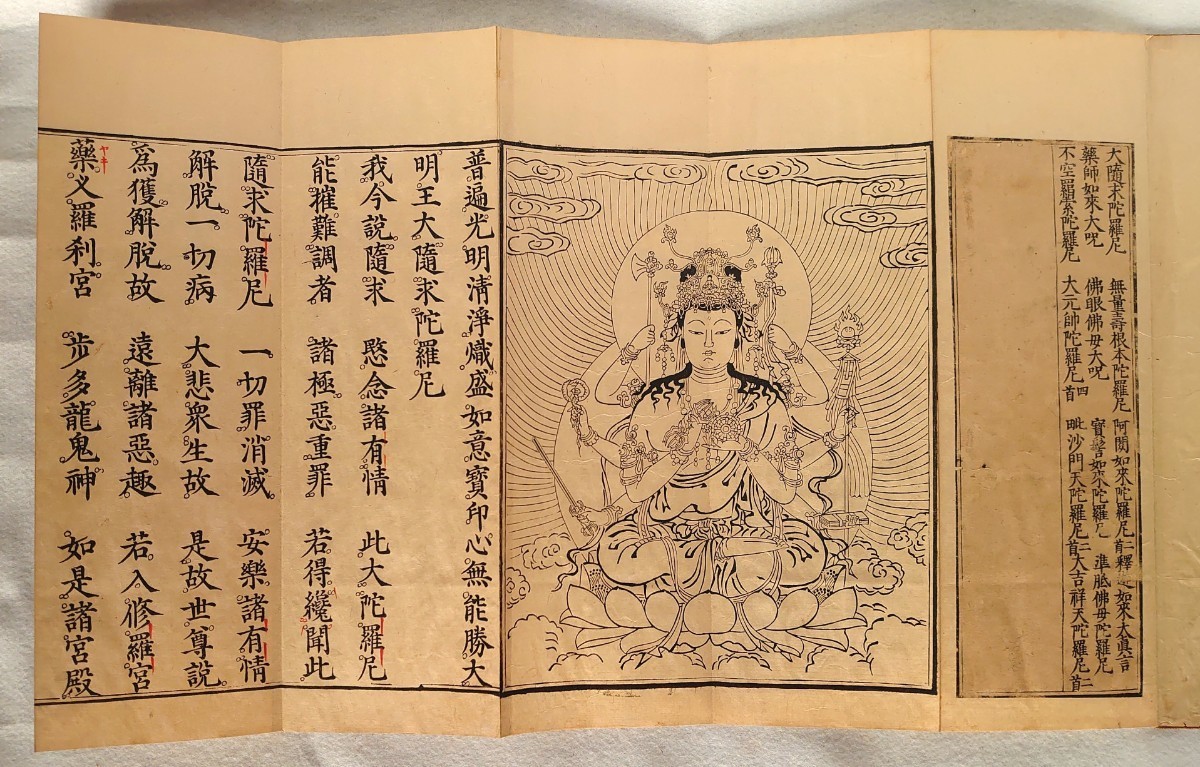 大隨求陀羅尼 無量壽根本陀羅尼 阿閦如來陀羅尼二首 釋迦如來大眞言
藥師如來大呪 佛眼佛母大呪 寳髻如來陀羅尼 準胝佛母陀羅尼
不空羂索陀羅尼 大元帥陀羅尼四首 毗沙門天陀羅尼二首 大吉祥天陀羅尼二首
普遍光明清淨熾盛如意寶印心無能勝大
明王大隨求陀羅尼
我今說隨求 愍念諸有情 此大陀羅尼
能摧難調者 諸極惡重罪 若得纔聞此
隨求陀羅尼 一切罪消滅 安樂諸有情
解脫一切病 大悲衆生故 是故世尊說
爲獲解脫故 遠離諸惡趣 若入修羅宮
藥叉羅刹宮 步多龍鬼神 如是諸宮殿
ヤキ